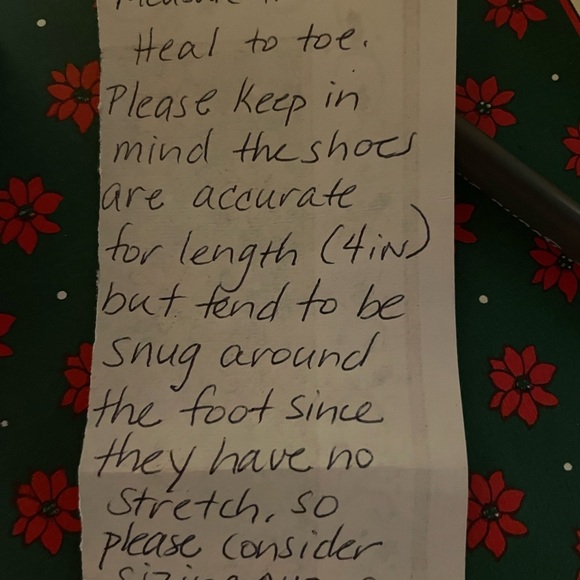 Measure
Heal to toe.
Please keep in
mind the shoes
are accurate
for length (4in)
but tend to be
snug around
the foot since
they have no
stretch, so
please consider